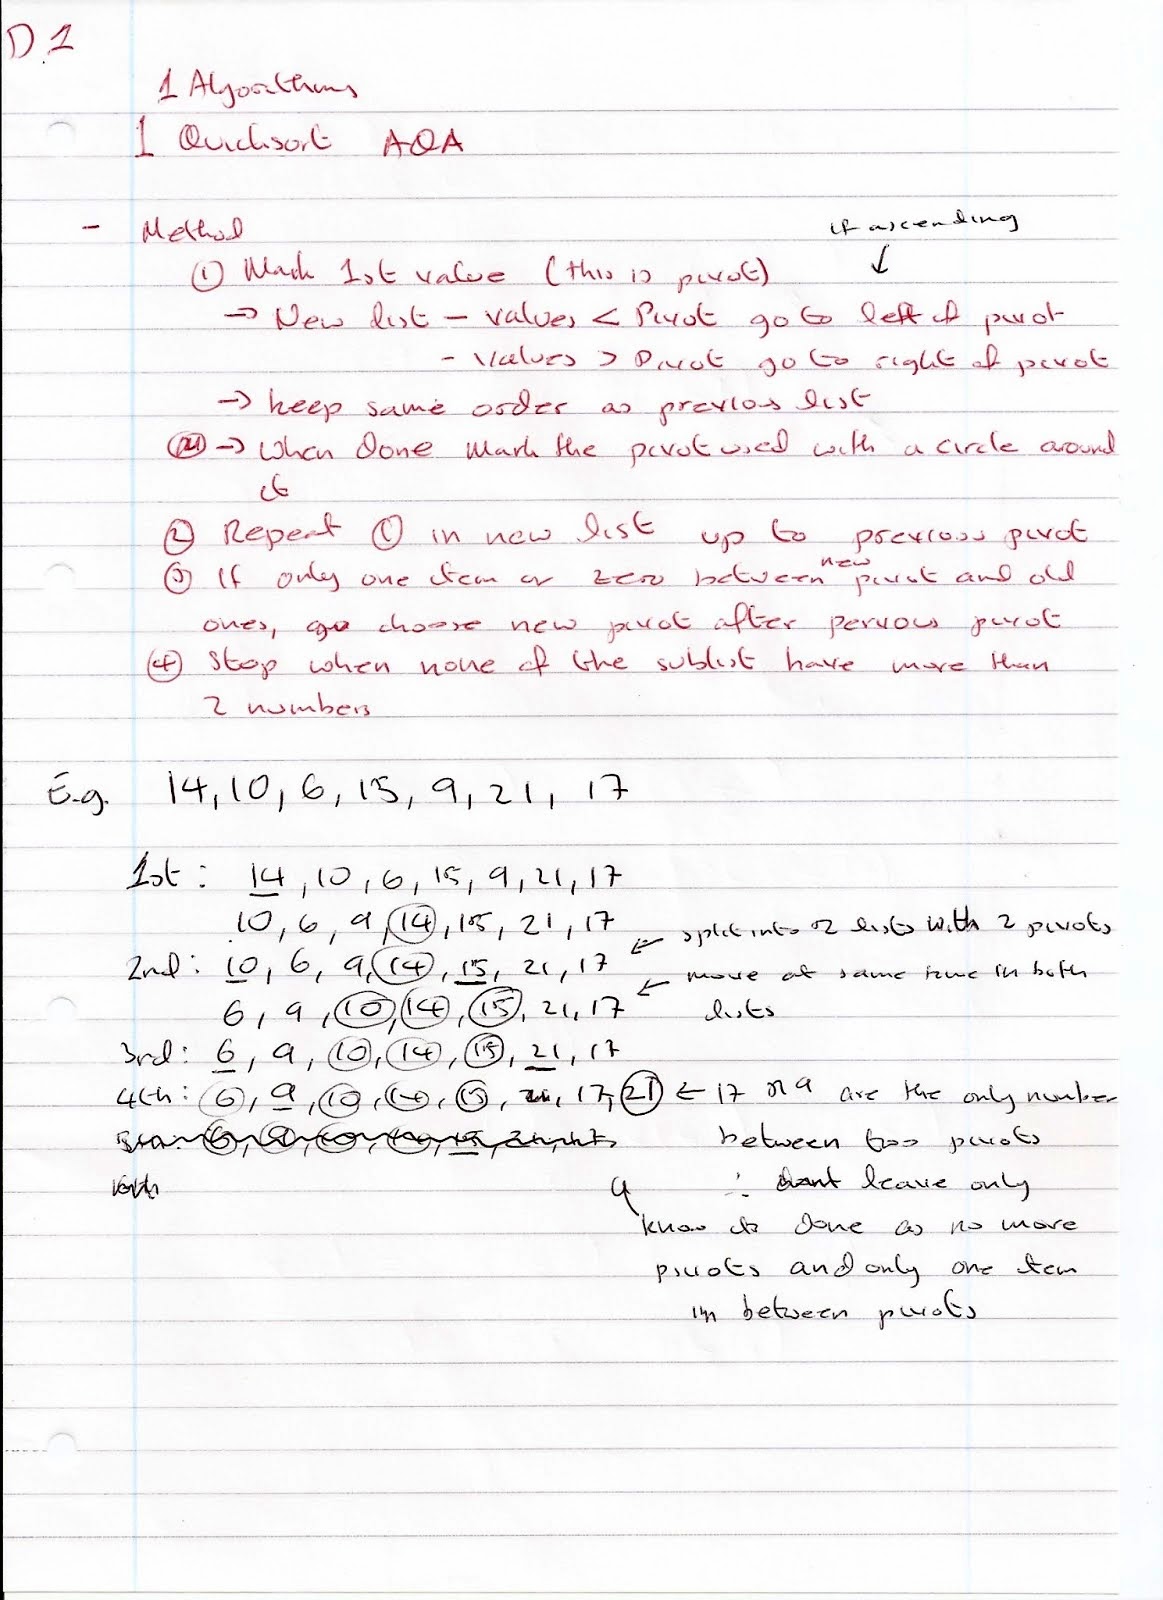 D1
1 Algorithms
1 Quicksort AQA
- Method
if ascending
↓
① Mark 1st value (this is pivot)
→ New list - values < Pivot go to left of pivot
- values > Pivot go to right of pivot
→ keep same order as previos list
→ When done mark the pivot used with a circle around
it
② Repeat ① in new list up to previous pivot
③ If only one item or zero between new pivot and old
ones, go choose new pivot after pervous pivot
④ Stop when none of the sublist have more than
2 numbers
E.g. 14, 10, 6, 15, 9, 21, 17
1st: 14, 10, 6, 15, 9, 21, 17
10, 6, 9, 14, 15, 21, 17
← split into 2 lists with 2 pivots
2nd: 10, 6, 9, 14, 15, 21, 17
← move at same time in both
6, 9, 10, 14, 15, 21, 17
lists
3rd: 6, 9, 10, 14, 15, 21, 17
4th: 6, 9, 10, 14, 15, 17, 21 ← 17 & 9 are the only number
between two pivots
∴ leave only
know its done as no more
pivots and only one item
in between pivots